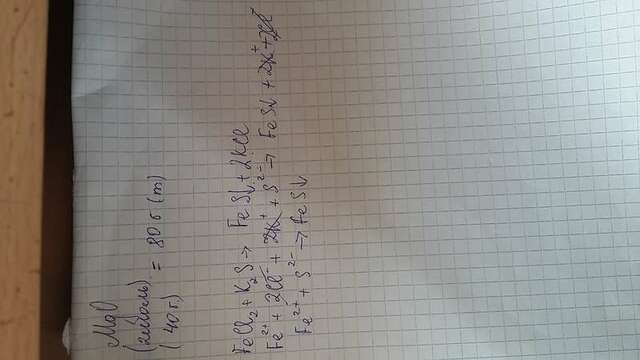 MgO
(2моль)
(40г) = 80г (m)
FeCl₂ + K₂S → FeS↓ + 2KCl
Fe²⁺ + 2Cl⁻ + 2K⁺ + S²⁻ → FeS↓ + 2K⁺ + 2Cl⁻
Fe²⁺ + S²⁻ → FeS↓